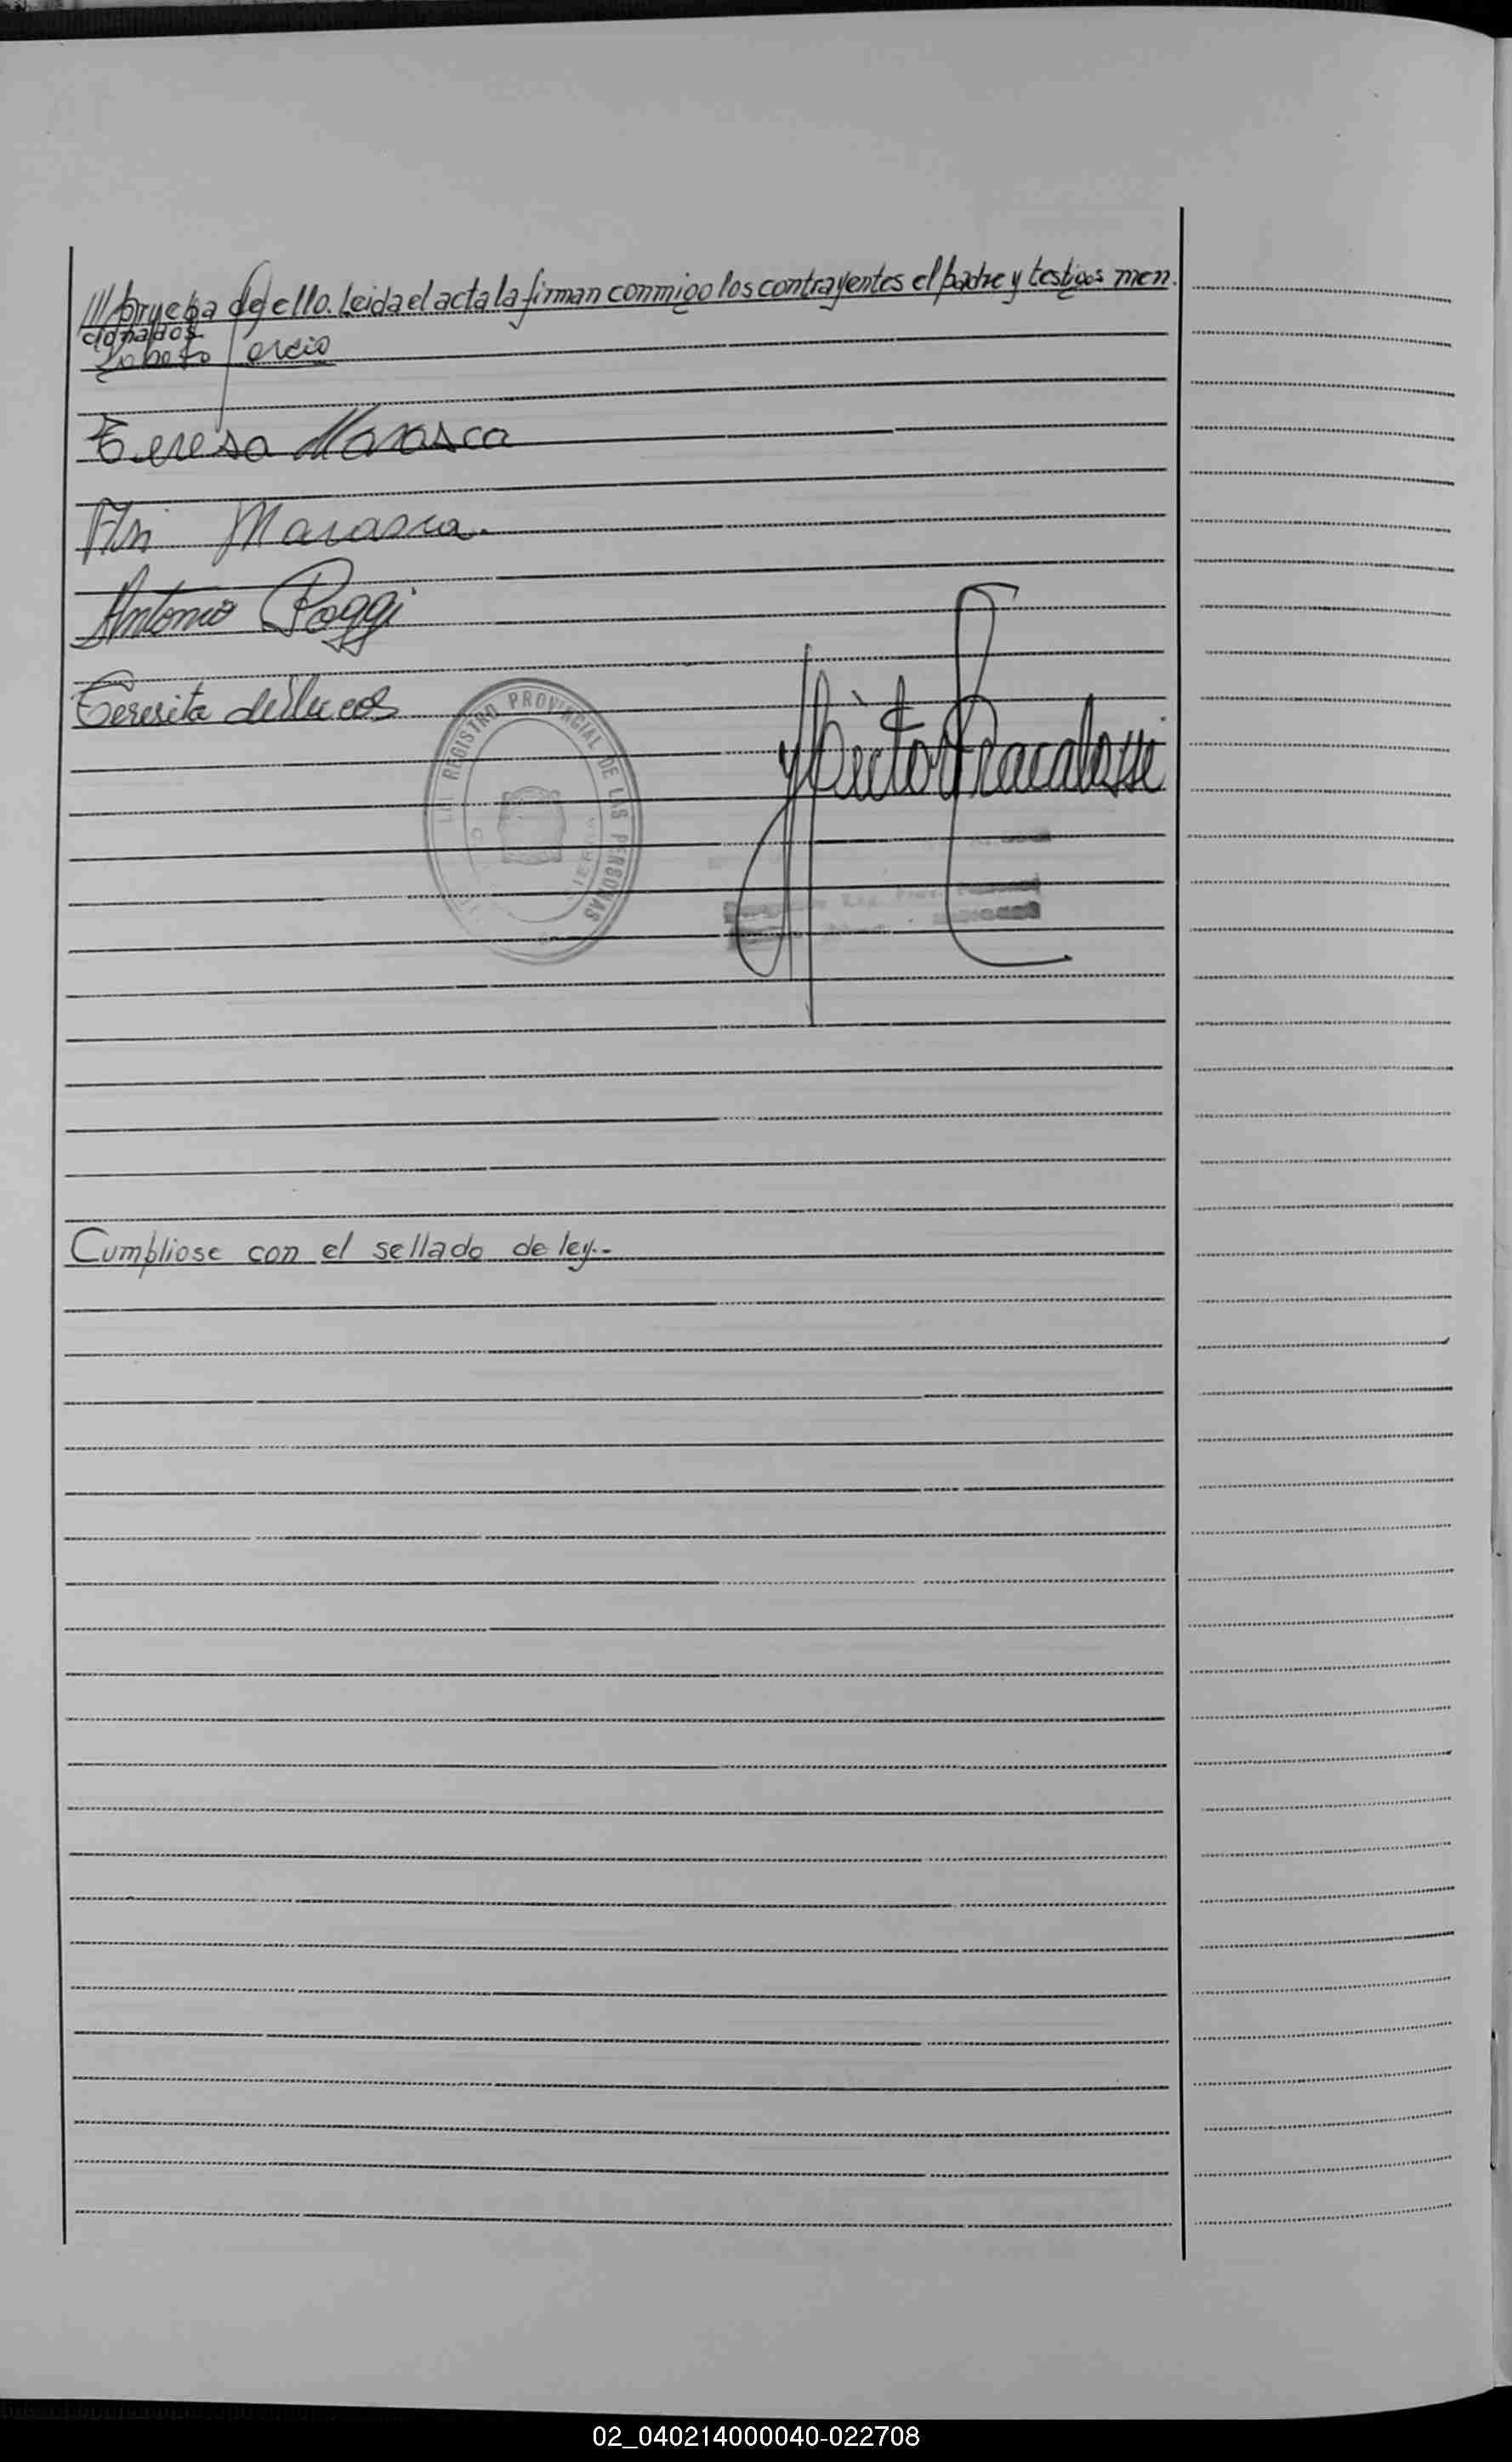 ///prueba de ello. Leida el acta la firman conmigo los contrayentes el padre y testigos men
cionados
Teresa Marasca
Marasca.
Antonio Poggi
Teresita de
REGISTRO PROVINCIAL DE LAS PERSONAS
Hector
Cumpliose con el sellado de ley.-
02_040214000040-022708